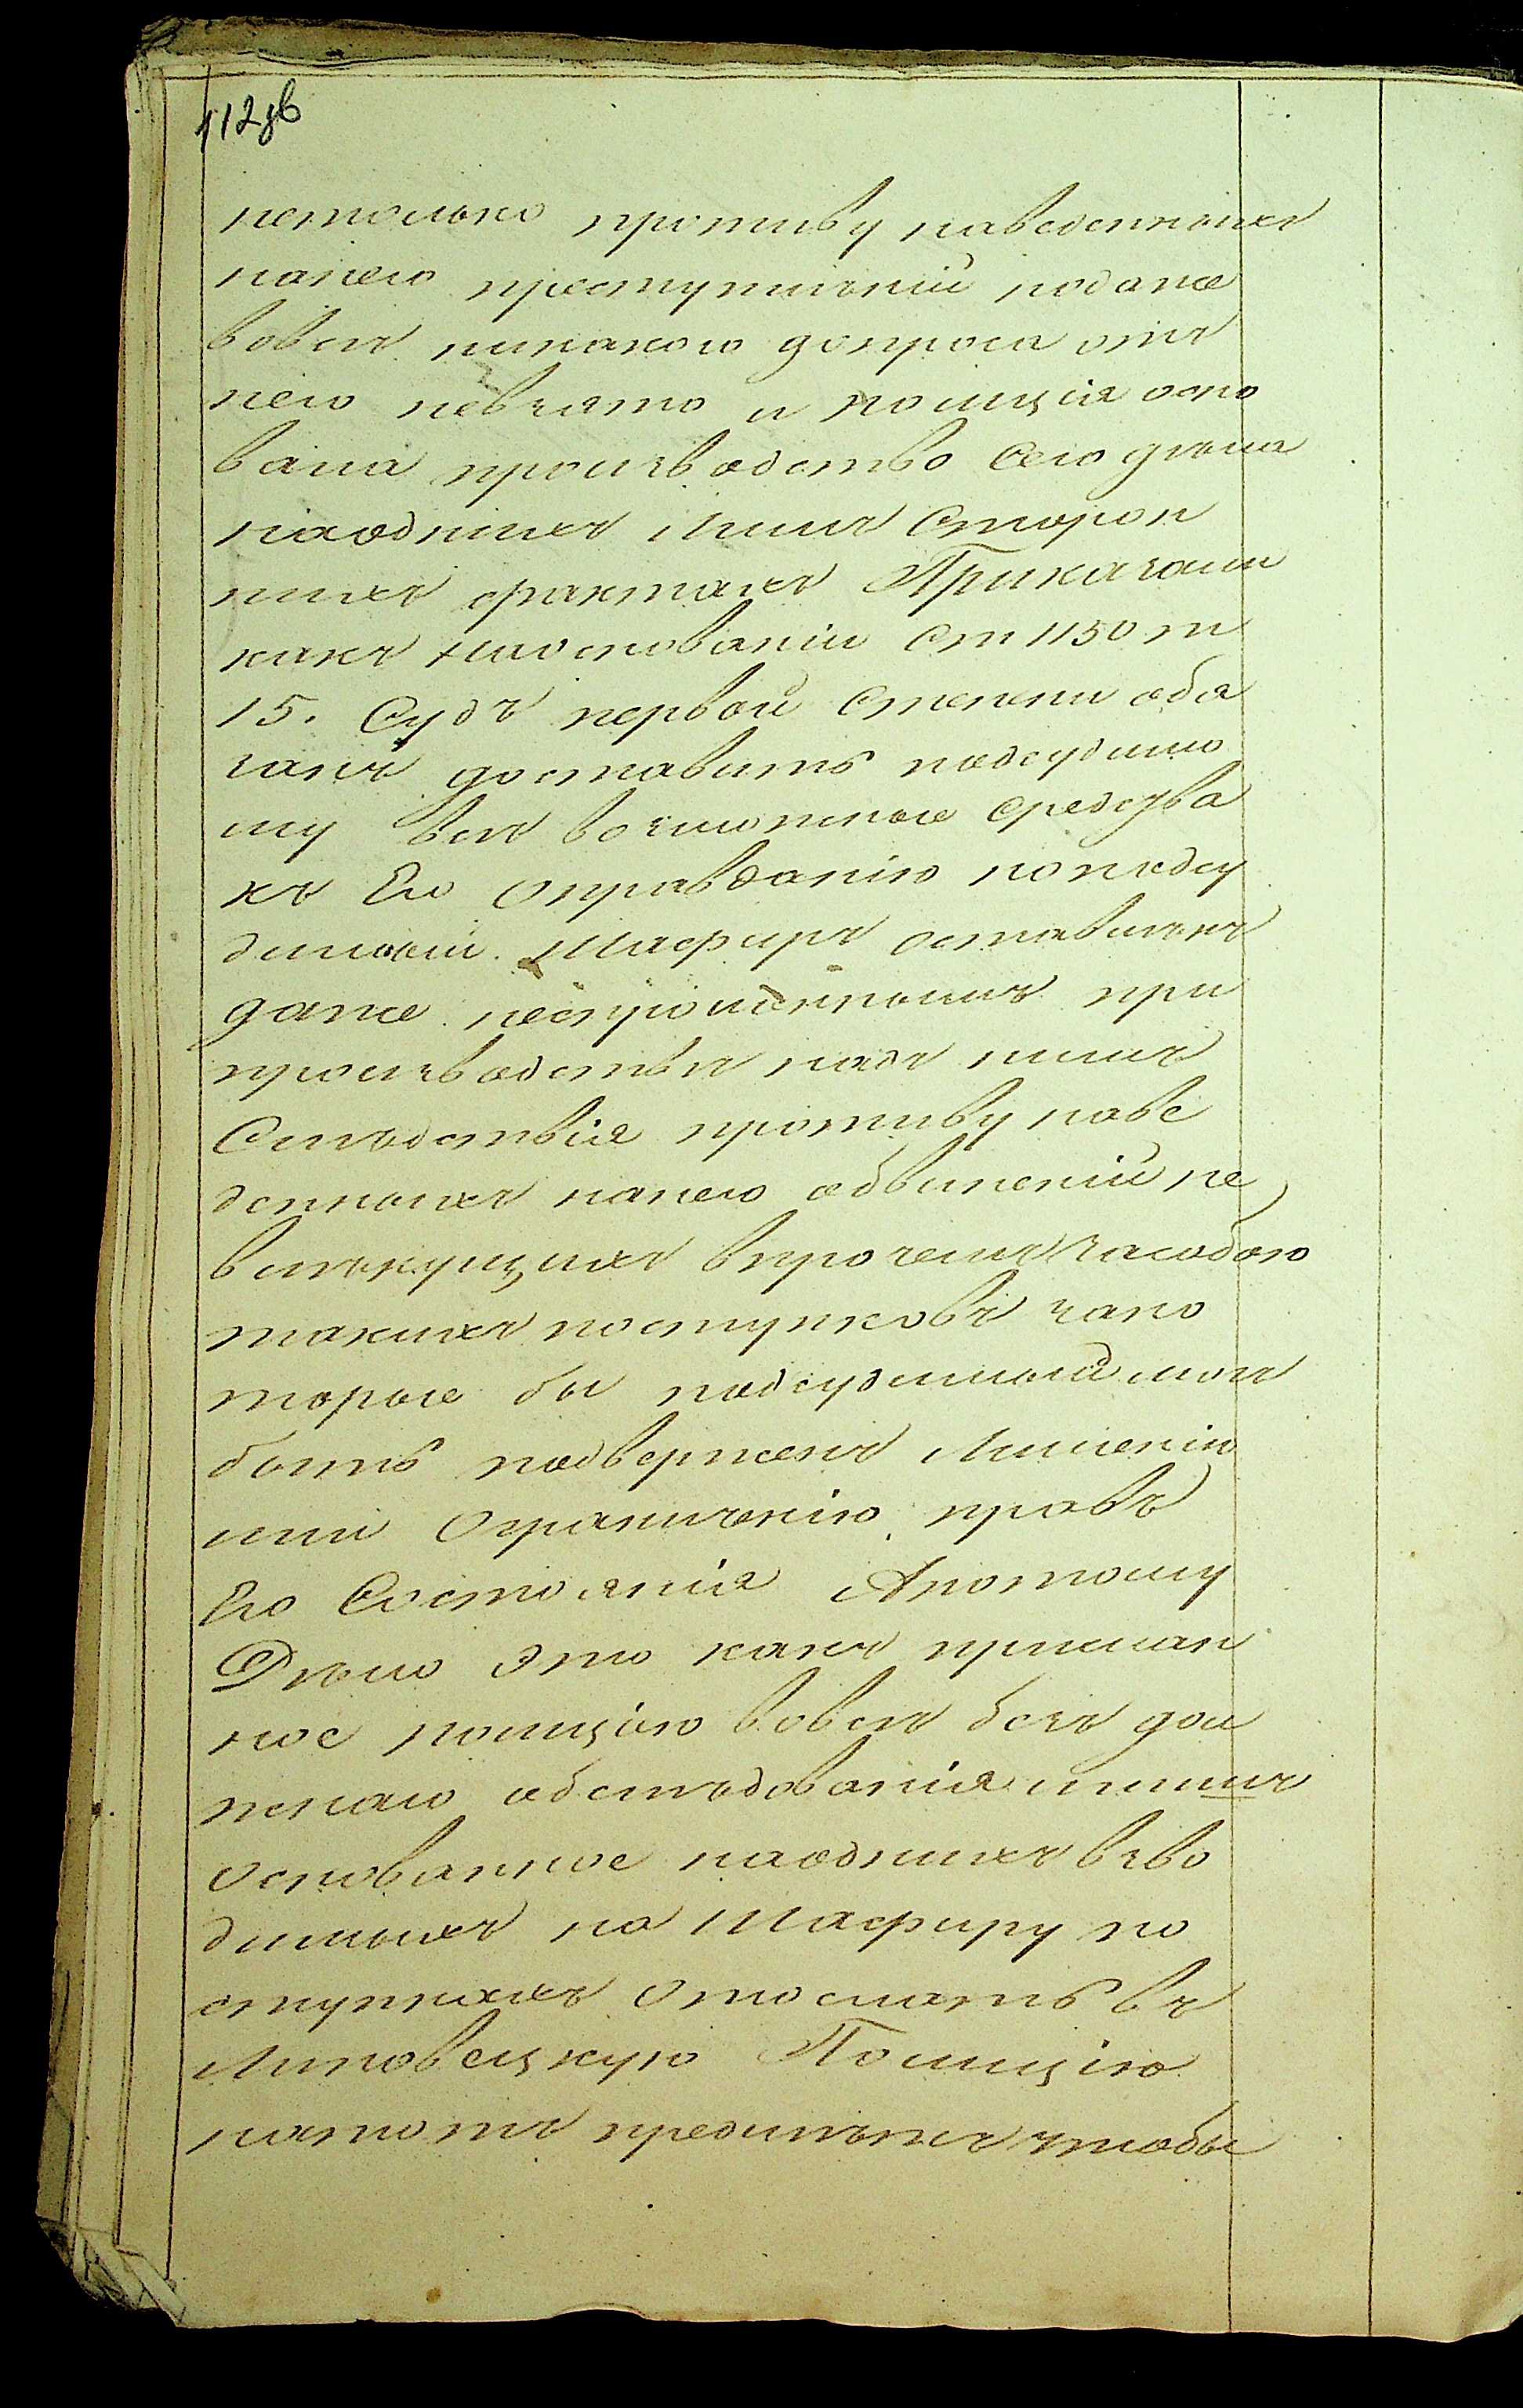 112 зв
нетолько противу наведенныхъ
нанего преступленій ноdаже
вовсѣ никакого допроса отъ
него невзято и полиція осно
вала производство сего дѣла
наоднихъ лишъ сторон
нихъ фрактахъ Приказали
какъ наосновании ст 1150 т
15. Судъ первой степени обя
занъ доставить подсудимо
му всѣ возможные средства
къ Его оправданію но подсу
димый Шафиръ оставленъ
даже неспрошеннымъ при
производствѣ надъ нимъ
Слѣдствія противу наве
денныхъ нанего обвиненій не
влекущихъ впрочемъ засобою
такихъ поступковъ зако
торые бы подсудимый могъ
быть подверженъ Лишенію
или ограниченію правъ
Его Состоянія Апотому
Дѣло это какъ присман
ное полиціею вовсѣ безъ дол
жнаго обслѣдованія лишъ
основанное наоднихъ взво
димыхъ на Шафиру по
ступкахъ отослать въ
Липовецкую Полицію
натотъ предметъ чтобы